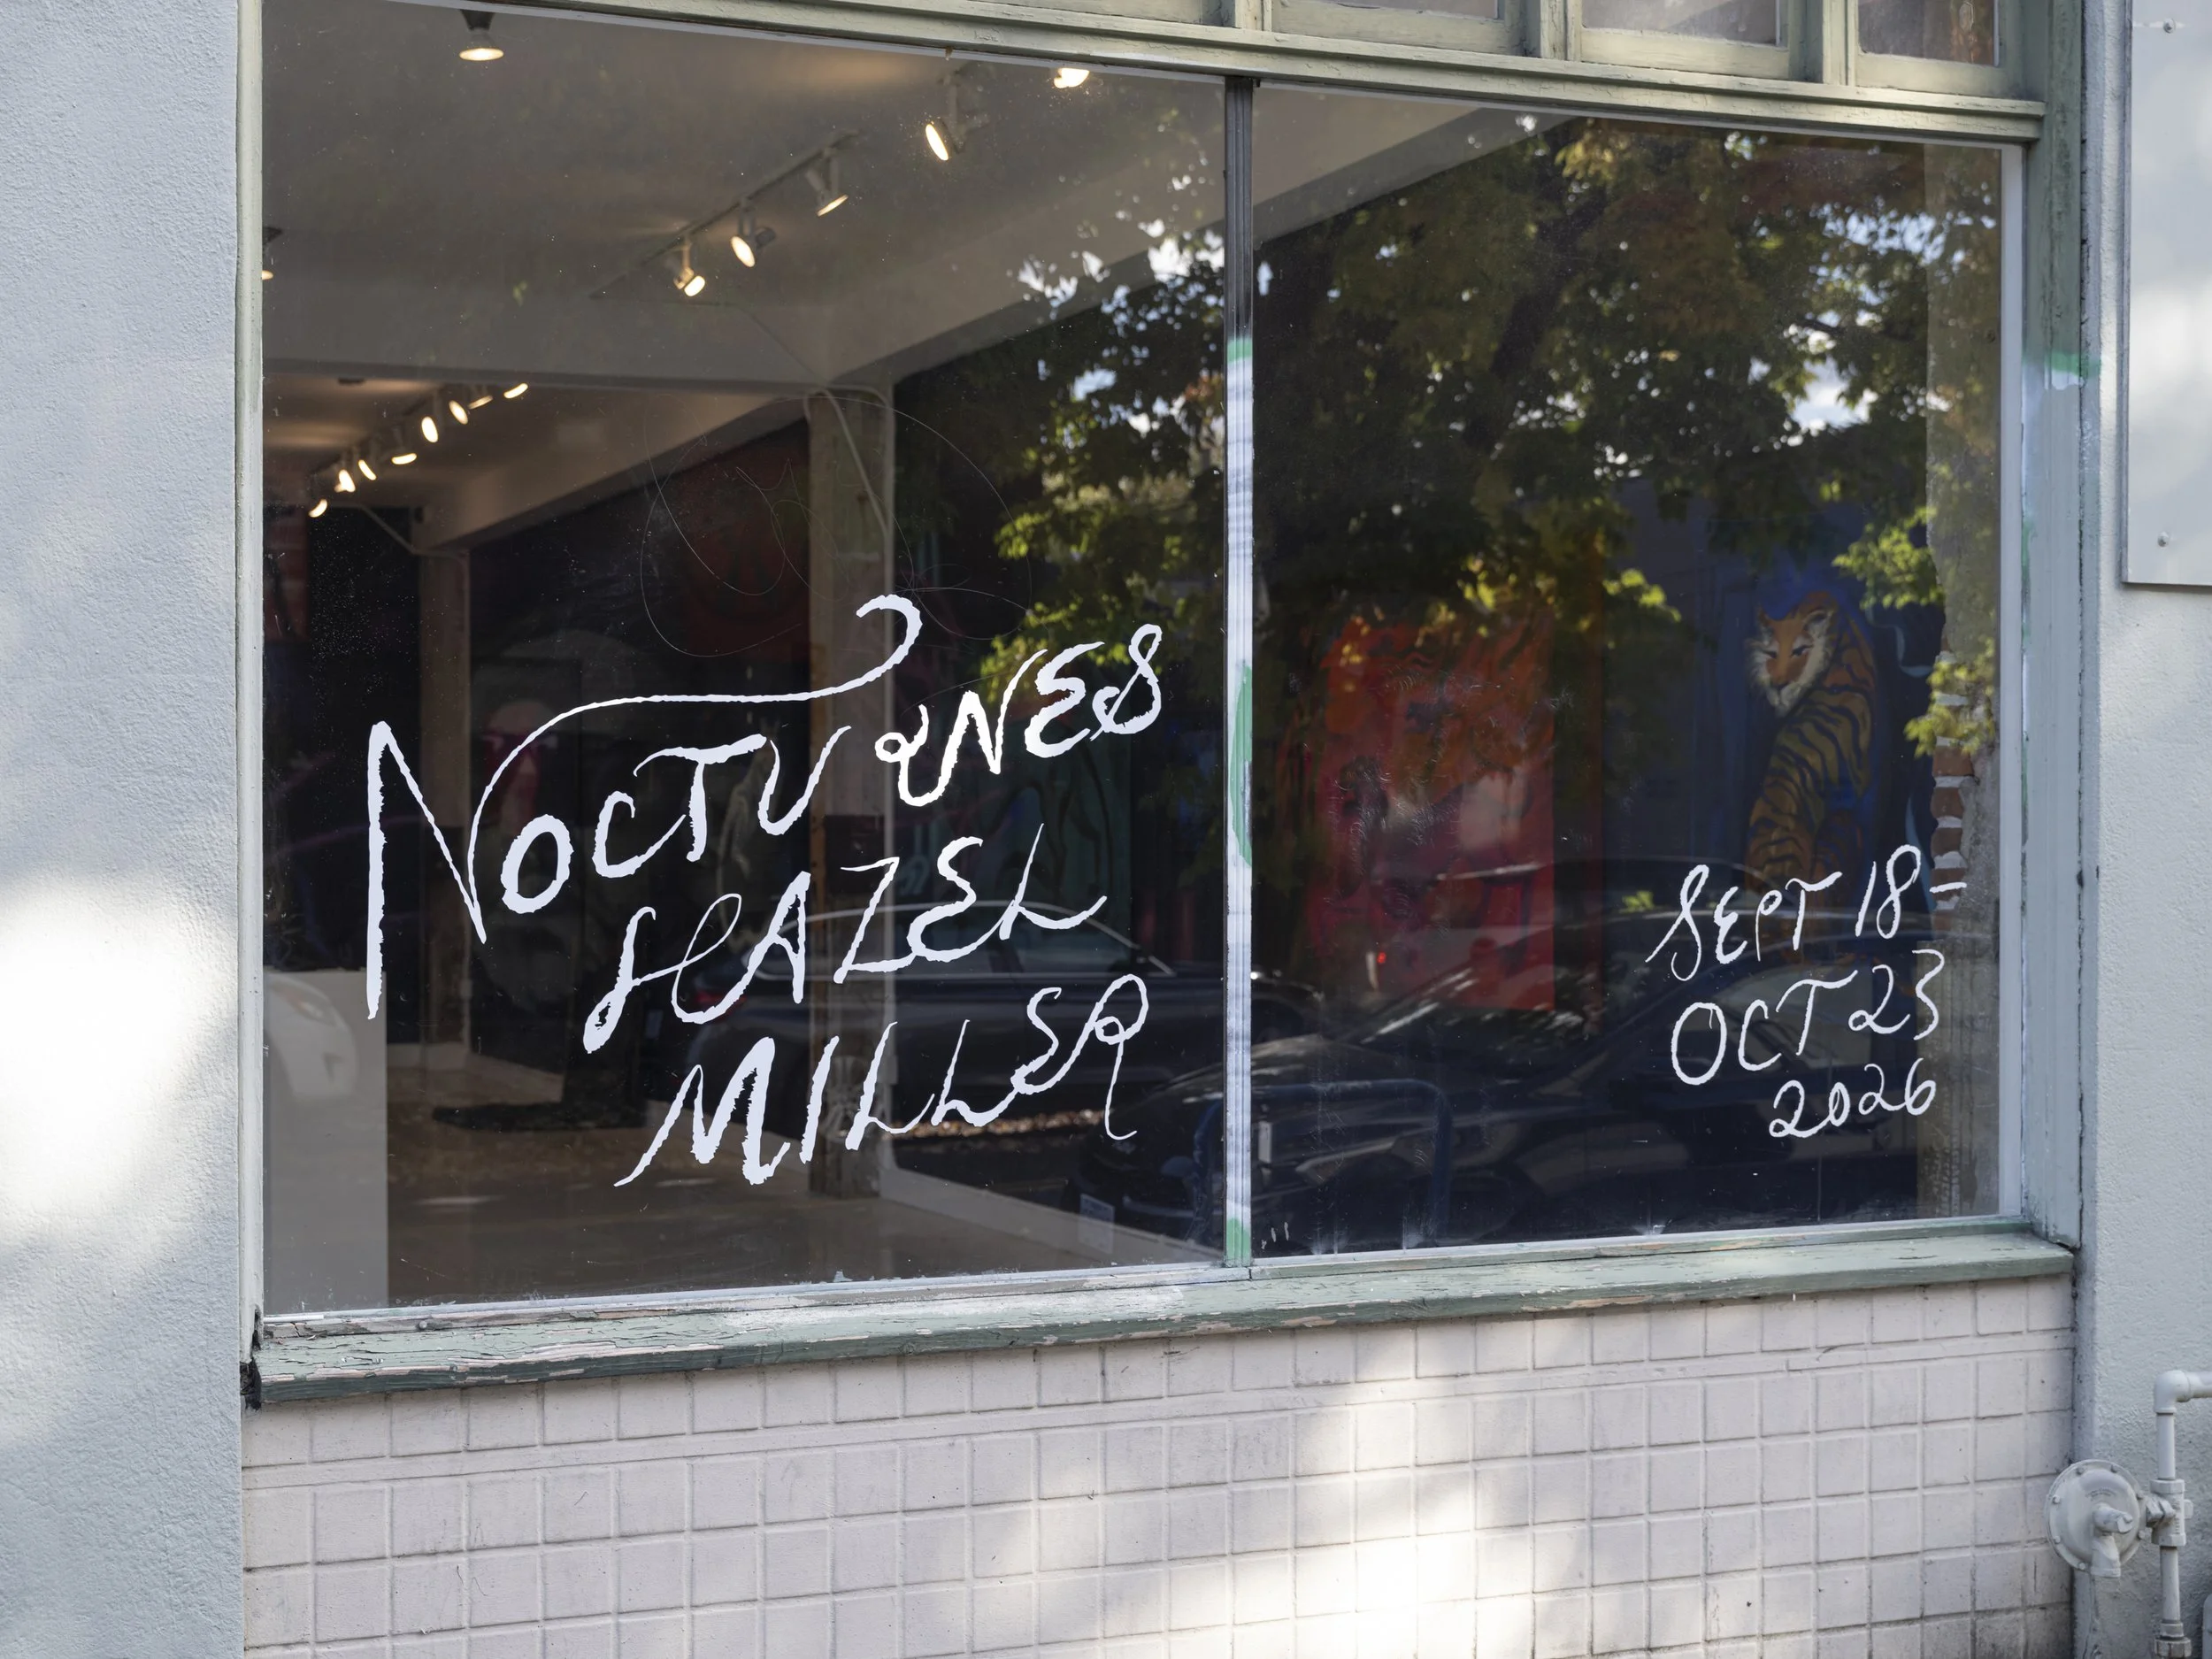 NOCTURNES
HAZEL
MILLER
SEPT 18-
OCT 23
2026